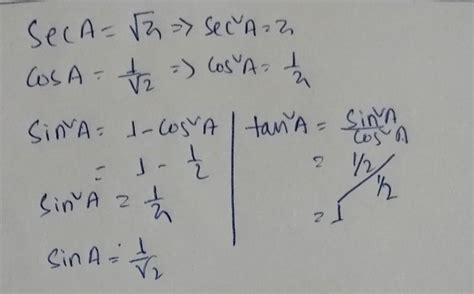 Sec A = √2 ⇒ Sec²A = 2
Cos A = 1/√2 ⇒ Cos²A = 1/2
Sin²A = 1 - Cos²A
= 1 - 1/2
Sin²A = 1/2
Sin A = 1/√2
tan²A = Sin²A/Cos²A
= 1/2 / 1/2
= 1